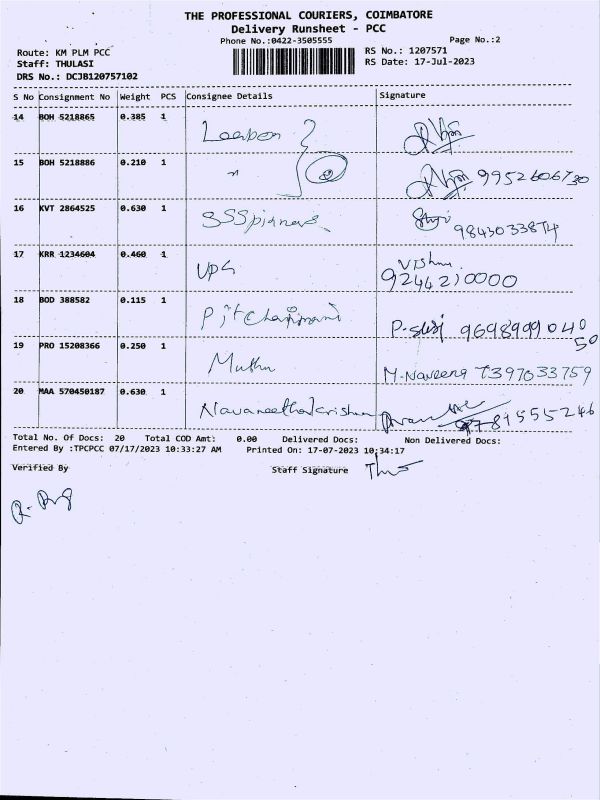 THE PROFESSIONAL COURIERS, COIMBATORE
Delivery Runsheet - PCC
Phone No.:0422-3505555
Page No.:2
Route: KM PLM PCC
RS No.: 1207571
Staff: THULASI
RS Date: 17-Jul-2023
DRS No.: DCJB120757102
S No Consignment No Weight PCS Consignee Details Signature
14 BOH 5218865 0.385 1
15 BOH 5218886 0.210 1 9952606730
16 KVT 2864525 0.630 1 9843033874
17 KRR 1234604 0.460 1 UPS Vishnu
9244210000
18 BOD 388582 0.115 1 9698999040
50
19 PRO 15208366 0.250 1 Muthu M-Naveena 7397033759
20 MAA 570450187 0.630 1 Navaneethakrishnan
Total No. Of Docs: 20 Total COD Amt: 0.00 Delivered Docs: Non Delivered Docs:
Entered By :TPCPCC 07/17/2023 10:33:27 AM Printed On: 17-07-2023 10:34:17
Verified By Staff Signature